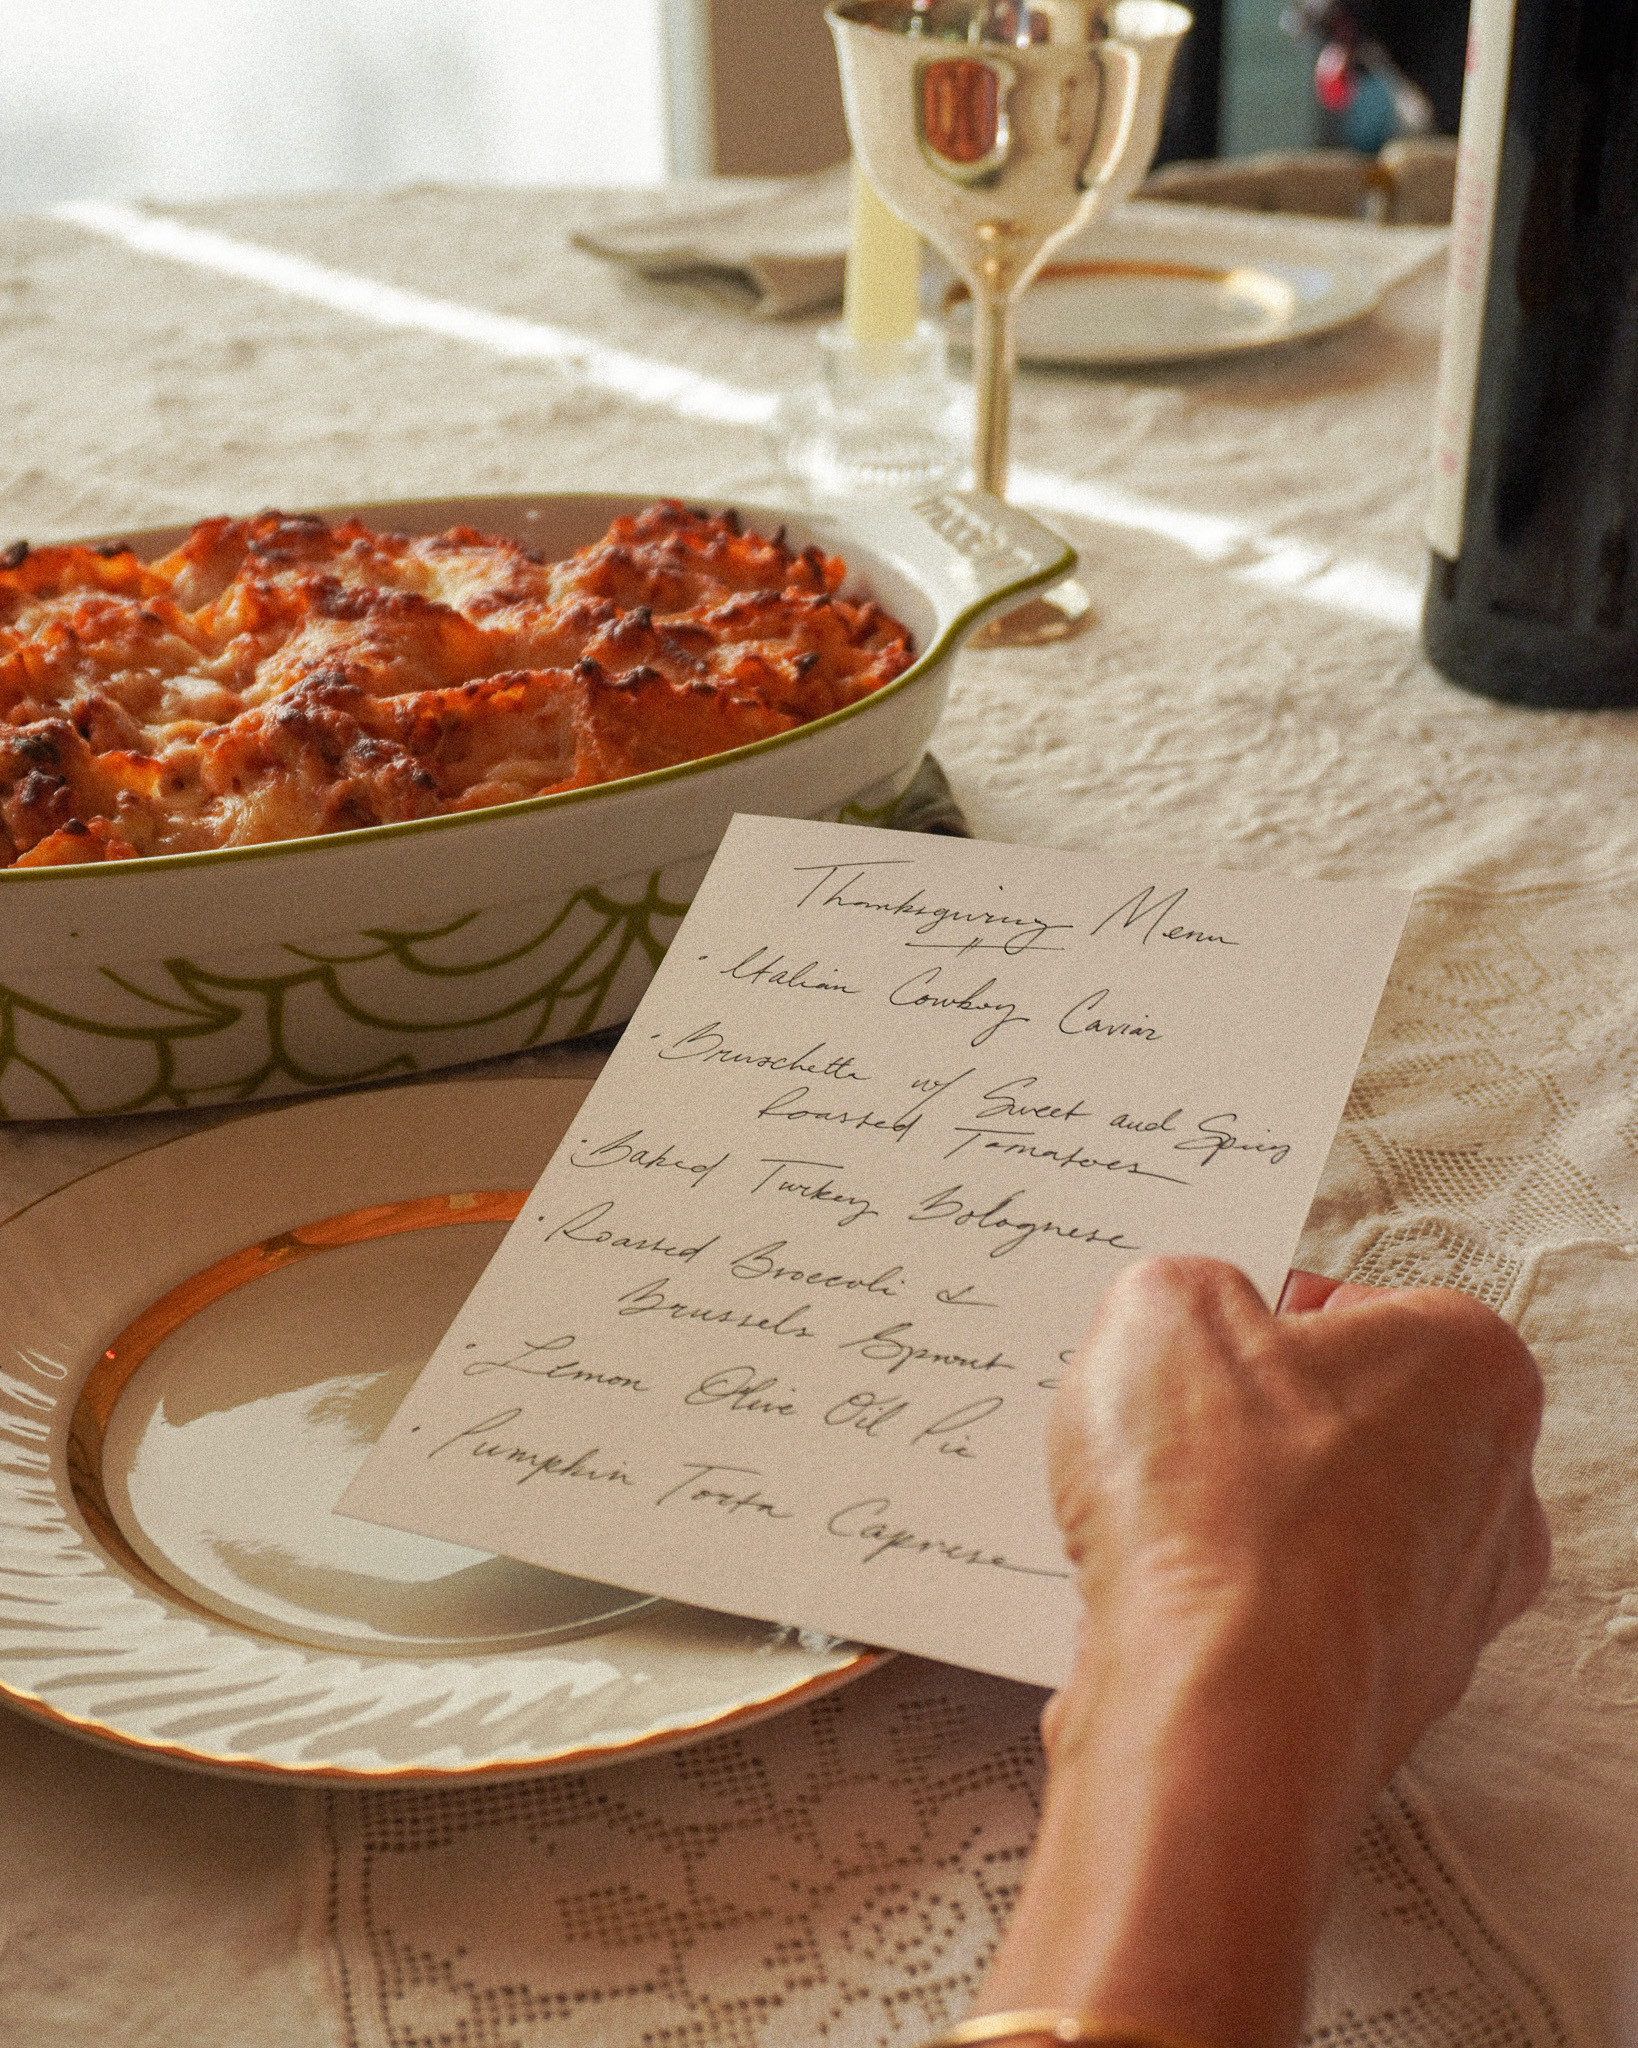 Thanksgiving Menu
· Italian Cowboy Caviar
· Bruschetta w/ Sweet and Spicy
Roasted Tomatoes
· Baked Turkey Bolognese
· Roasted Broccoli &
Brussels Sprout
· Lemon Olive Oil Pie
· Pumpkin Torta Caprese